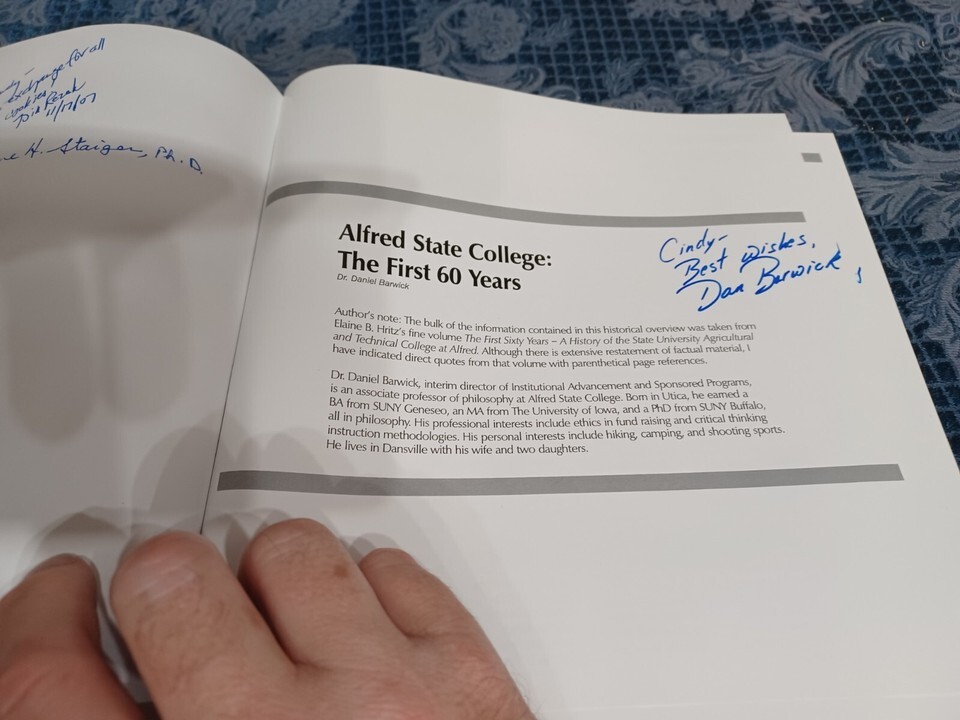 exchange for all
cookies
11/17/07
H. Staiger, Ph.D.
Alfred State College:
The First 60 Years
Dr. Daniel Barwick
Cindy-
Best wishes,
Dan Barwick
Author's note: The bulk of the information contained in this historical overview was taken from
Elaine B. Hritz's fine volume The First Sixty Years – A History of the State University Agricultural
and Technical College at Alfred. Although there is extensive restatement of factual material, I
have indicated direct quotes from that volume with parenthetical page references.
Dr. Daniel Barwick, interim director of Institutional Advancement and Sponsored Programs,
is an associate professor of philosophy at Alfred State College. Born in Utica, he earned a
BA from SUNY Geneseo, an MA from The University of Iowa, and a PhD from SUNY Buffalo,
all in philosophy. His professional interests include ethics in fund raising and critical thinking
instruction methodologies. His personal interests include hiking, camping, and shooting sports.
He lives in Dansville with his wife and two daughters.